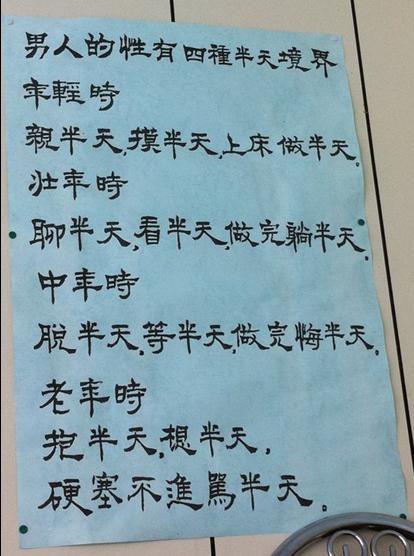 男人的性有四種半天境界
年輕時
親半天,摸半天,上床做半天。
壯年時
聊半天,看半天,做完躺半天.
中年時
脫半天,等半天,做完悔半天.
老年時
抱半天,想半天,
硬塞不進罵半天.